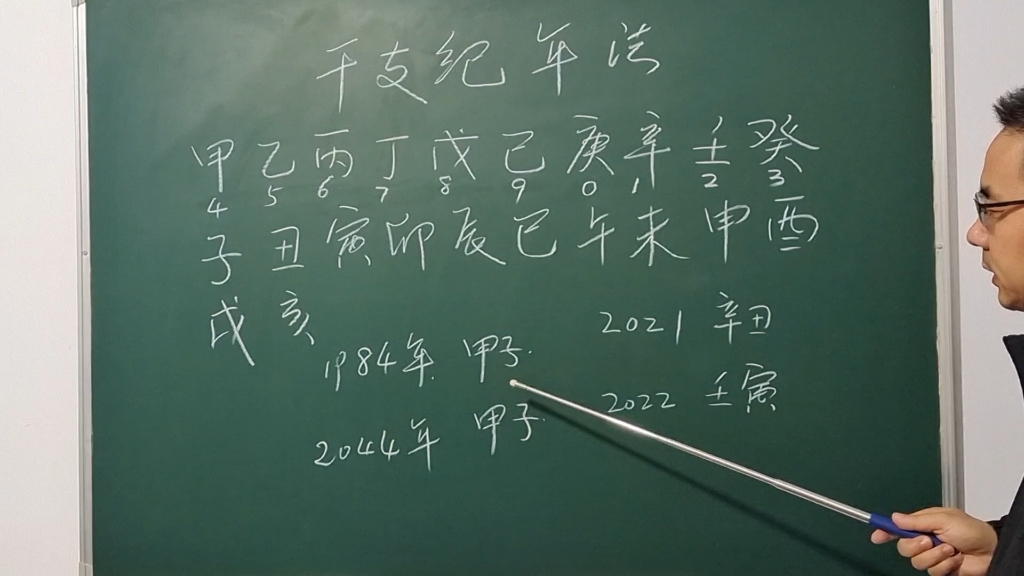 干支纪年法
甲乙丙丁戊己庚辛壬癸
4 5 6 7 8 9 0 1 2 3
子丑寅卯辰巳午未申酉
戌亥
1984年 甲子
2044年 甲子
2021 辛丑
2022 壬寅